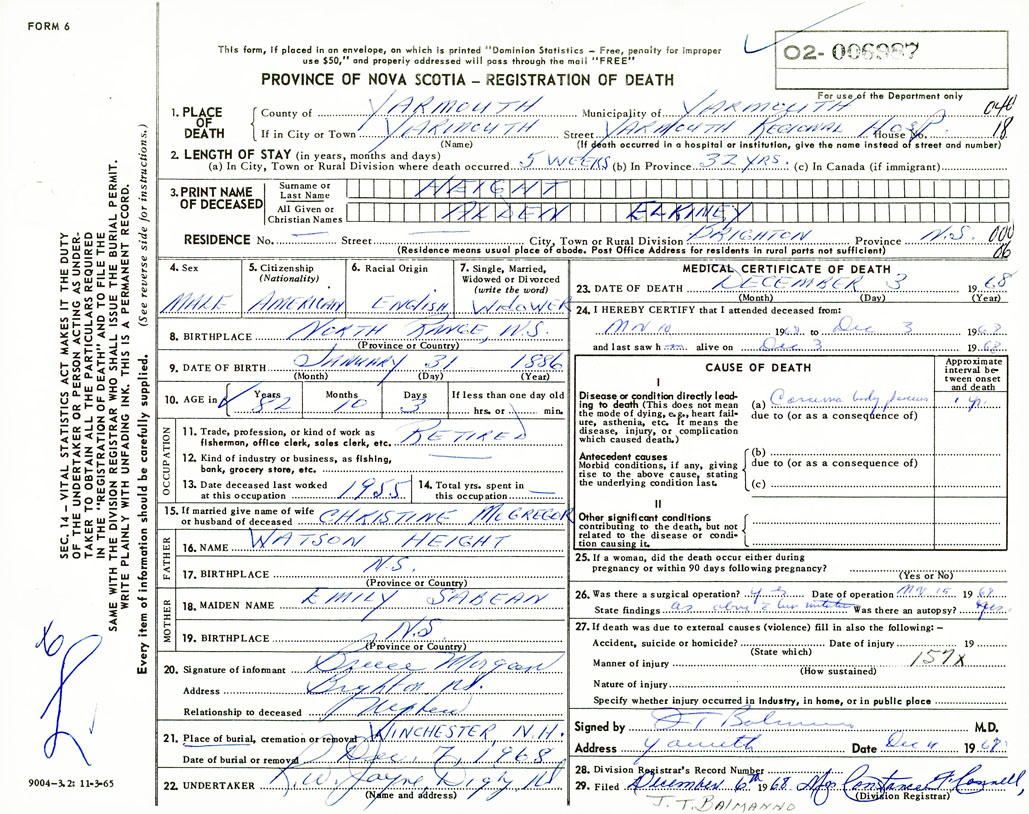 FORM 6
This form, if placed in an envelope, on which is printed "Dominion Statistics – Free, penalty for improper
use $50," and properly addressed will pass through the mail "FREE"
PROVINCE OF NOVA SCOTIA – REGISTRATION OF DEATH
02- 006987
For use of the Department only
1. PLACE OF DEATH
County of YARMOUTH Municipality of YARMOUTH 040
If in City or Town YARMOUTH Street YARMOUTH REGIONAL HOSP. House No. 18
(Name) (If death occurred in a hospital or institution, give the name instead of street and number)
2. LENGTH OF STAY (in years, months and days)
(a) In City, Town or Rural Division where death occurred 5 WEEKS (b) In Province 32 YRS. (c) In Canada (if immigrant)
3. PRINT NAME OF DECEASED
Surname or Last Name HEIGHT
All Given or Christian Names ALDEN ELKINEY
RESIDENCE No. — Street — City, Town or Rural Division BRIGHTON Province N.S. 000
(Residence means usual place of abode. Post Office Address for residents in rural parts not sufficient) 06
4. Sex MALE
5. Citizenship (Nationality) AMERICAN
6. Racial Origin ENGLISH
7. Single, Married, Widowed or Divorced (write the word) WIDOWER
8. BIRTHPLACE NORTH RANGE, N.S.
(Province or Country)
9. DATE OF BIRTH JANUARY 31 1886
(Month) (Day) (Year)
10. AGE in Years 82 Months 10 Days 3 If less than one day old
hrs. or min.
OCCUPATION
11. Trade, profession, or kind of work as fisherman, office clerk, sales clerk, etc. RETIRED
12. Kind of industry or business, as fishing, bank, grocery store, etc.
13. Date deceased last worked at this occupation 1955 14. Total yrs. spent in this occupation —
15. If married give name of wife or husband of deceased CHRISTINE McGREGOR
FATHER
16. NAME WATSON HEIGHT
17. BIRTHPLACE N.S.
(Province or Country)
MOTHER
18. MAIDEN NAME EMILY SABEAN
19. BIRTHPLACE N.S.
(Province or Country)
20. Signature of informant Bruce Morgan
Address Brighton N.S.
Relationship to deceased Nephew
21. Place of burial, cremation or removal WINCHESTER N.H.
Date of burial or removal Dec. 7, 1968
22. UNDERTAKER R.W. Jayne, Digby NS
(Name and address)
MEDICAL CERTIFICATE OF DEATH
23. DATE OF DEATH DECEMBER 3 1968
(Month) (Day) (Year)
24. I HEREBY CERTIFY that I attended deceased from:
10 1968 to Dec 3 1968
and last saw h alive on Dec 3 1968
CAUSE OF DEATH
Approximate interval between onset and death
I
Disease or condition directly leading to death (This does not mean the mode of dying, e.g., heart failure, asthenia, etc. It means the disease, injury, or complication which caused death.)
(a) body 1 yr.
due to (or as a consequence of)
Antecedent causes
Morbid conditions, if any, giving rise to the above cause, stating the underlying condition last.
(b)
due to (or as a consequence of)
(c)
II
Other significant conditions
contributing to the death, but not related to the disease or condition causing it.
25. If a woman, did the death occur either during
pregnancy or within 90 days following pregnancy?
(Yes or No)
26. Was there a surgical operation? yes Date of operation 15 1968
State findings as above Was there an autopsy? yes.
27. If death was due to external causes (violence) fill in also the following: –
Accident, suicide or homicide? Date of injury 19
(State which)
Manner of injury 157X
(How sustained)
Nature of injury
Specify whether injury occurred in industry, in home, or in public place
Signed by J T Balmanno M.D.
Address Yarmouth Date Dec 4 1968
28. Division Registrar's Record Number
29. Filed December 6th 1968 Mrs Constance
(Division Registrar)
J. T. BALMANNO
SEC. 14 – VITAL STATISTICS ACT MAKES IT THE DUTY
OF THE UNDERTAKER OR PERSON ACTING AS UNDER-
TAKER TO OBTAIN ALL THE PARTICULARS REQUIRED
IN THE "REGISTRATION OF DEATH" AND TO FILE THE
SAME WITH THE DIVISION REGISTRAR WHO SHALL ISSUE THE BURIAL PERMIT.
WRITE PLAINLY WITH UNFADING INK. THIS IS A PERMANENT RECORD.
Every item of information should be carefully supplied. (See reverse side for instructions.)
9004–3.2: 11-3-65